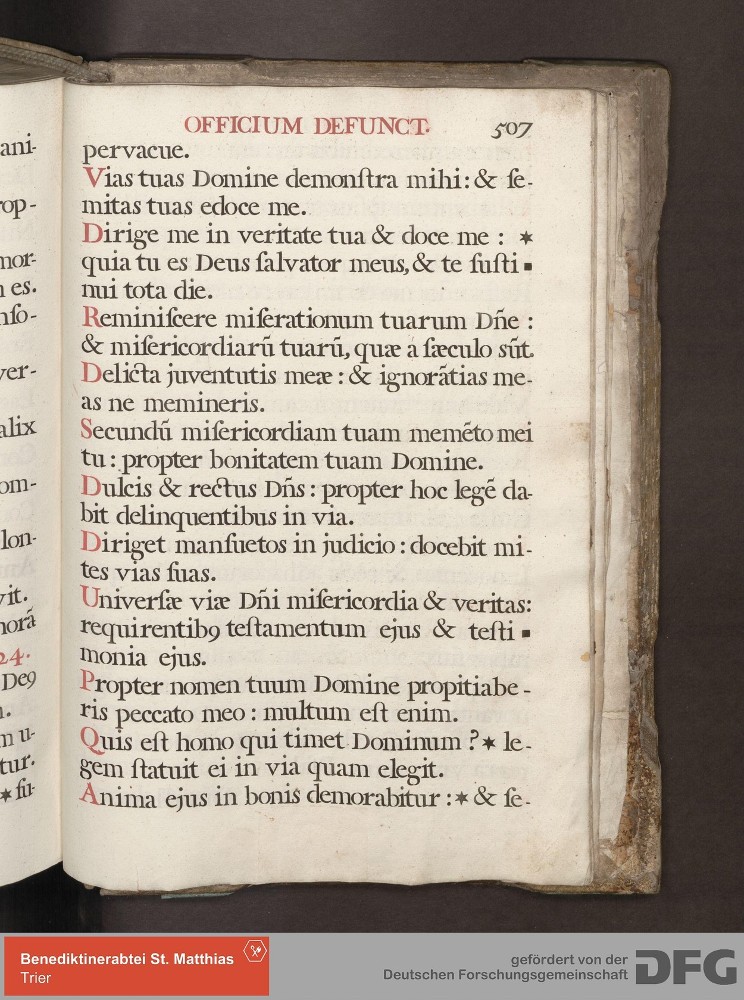 ani-
rop-
mor-
es.
nſo-
ver-
alix
om-
lon-
vit.
norā
24.
Deꝯ
m u-
tur.
✶ ſu-
OFFICIUM DEFUNCT. 507
pervacue.
Vias tuas Domine demonſtra mihi: & ſe-
mitas tuas edoce me.
Dirige me in veritate tua & doce me : ✶
quia tu es Deus ſalvator meus, & te ſuſti ▪
nui tota die.
Reminiſcere miſerationum tuarum Dñe :
& miſericordiarū tuarū, quæ a ſæculo sūt.
Delicta juventutis meæ : & ignorātias me-
as ne memineris.
Secundū miſericordiam tuam memēto mei
tu : propter bonitatem tuam Domine.
Dulcis & rectus Dñs : propter hoc legē da-
bit delinquentibus in via.
Diriget manſuetos in judicio : docebit mi-
tes vias ſuas.
Univerſæ viæ Dñi miſericordia & veritas:
requirentibꝯ teſtamentum ejus & teſti ▪
monia ejus.
Propter nomen tuum Domine propitiabe-
ris peccato meo : multum eſt enim.
Quis eſt homo qui timet Dominum ? ✶ le-
gem ſtatuit ei in via quam elegit.
Anima ejus in bonis demorabitur : ✶ & ſe-
Benediktinerabtei St. Matthias
Trier
gefördert von der
Deutschen Forschungsgemeinschaft
DFG